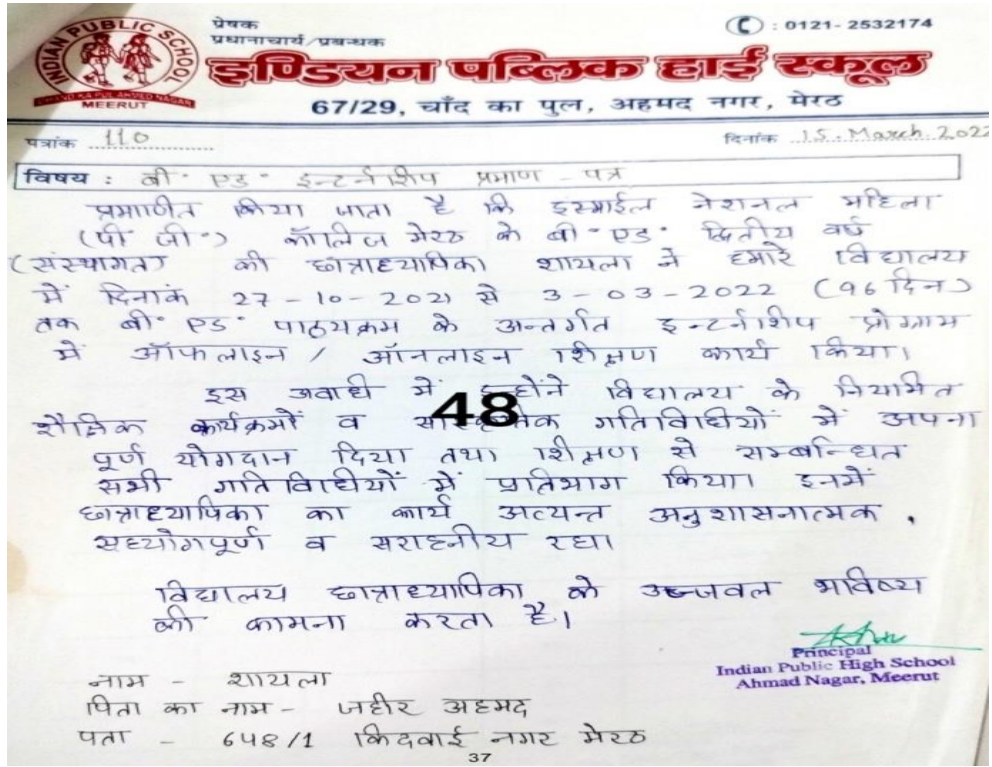 INDIAN PUBLIC SCHOOL
CHAND KA PUL AHMED NAGAR
MEERUT
प्रेषक
प्रधानाचार्य/प्रबन्धक
: 0121- 2532174
इण्डियन पब्लिक हाई स्कूल
67/29, चाँद का पुल, अहमद नगर, मेरठ
पत्रांक 110
दिनांक 15. March. 2022
विषय : बी॰ एड॰ इन्टर्नशिप प्रमाण - पत्र
प्रमाणित किया जाता है कि इस्माईल नेशनल महिला
(पी जी॰) कॉलेज मेरठ के बी॰ एड॰ द्वितीय वर्ष
(संस्थागत) की छात्राध्यापिका शायला ने हमारे विद्यालय
में दिनांक 27-10-2021 से 3-03-2022 (96 दिन)
तक बी॰ एड॰ पाठ्यक्रम के अन्तर्गत इन्टर्नशिप प्रोग्राम
में ऑफलाइन / ऑनलाइन शिक्षण कार्य किया।
इस अवधि में उन्होंने विद्यालय के नियमित
48
शैक्षिक कार्यक्रमों व गतिविधियों में अपना
पूर्ण योगदान दिया तथा शिक्षण से सम्बन्धित
सभी गतिविधियों में प्रतिभाग किया। इनमें
छात्राध्यापिका का कार्य अत्यन्त अनुशासनात्मक ,
सहयोगपूर्ण व सराहनीय रहा।
विद्यालय छात्राध्यापिका के उज्जवल भविष्य
की कामना करता है।
Principal
Indian Public High School
Ahmad Nagar, Meerut
नाम - शायला
पिता का नाम - जहीर अहमद
पता - 648/1 किदवाई नगर मेरठ
37